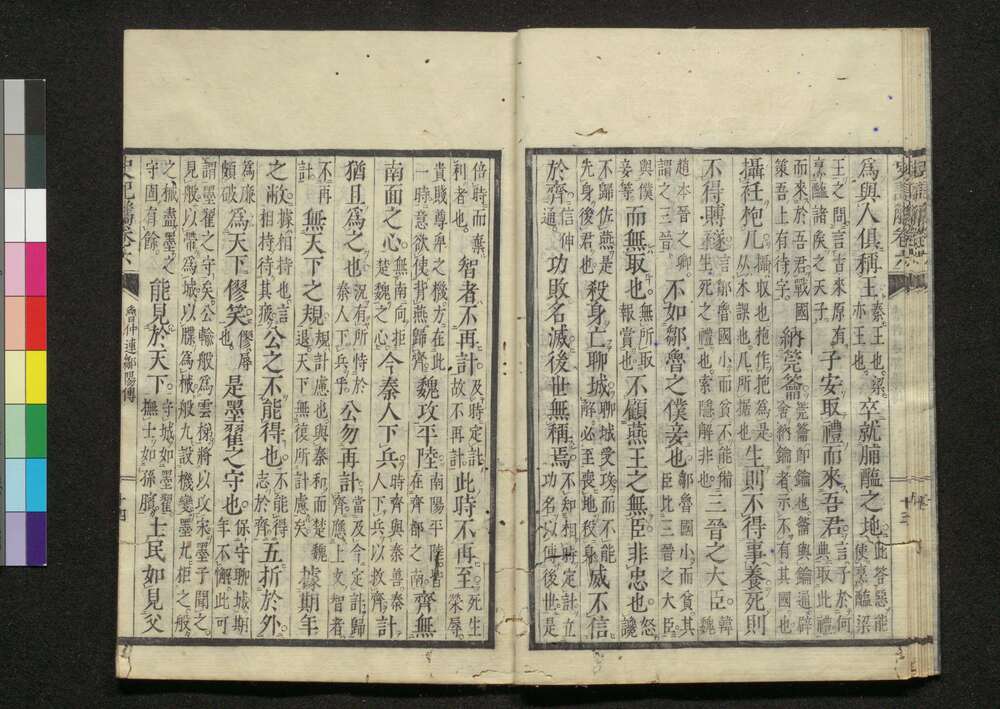 爲與人俱稱王秦王也梁亦王也卒就脯醢之地此答惡能使烹醢梁
王之問言古來原有烹醢諸侯之天子子安取禮而來吾君言子於何典取此禮
而來於吾君戰國策吾上有待字納筦籥筦籥卽鑰也籥與鑰通辟舍納鑰者示不有其國也
攝衽抱几攝取也抱作抱爲是几从木課也几所據也生則不得事養死則
不得賻襚言鄒魯國小而貧不能備生死之禮也索隱解非也三晉之大臣韓魏
趙本晉之卿謂之三晉不如鄒魯之僕妾也鄒魯國小而貧其臣比三晉之大臣
與僕妾等而無取也無所取報賞也不顧燕王之無臣非忠也讒怒
不歸佐燕是先身後君也殺身亡聊城聊城受攻而不能解必至喪地殺身威不信
於齊信伸通功敗名滅後世無稱焉不知相時定計立功名以傳後世是
倍時而棄利者也智者不再計及時定計故不再計此時不再至死生榮辱
貴賤尊卑之機方在此一時意欲使背燕歸齊魏攻平陸南陽平陸皆在齊都之南齊無
南面之心無南向拒楚魏之心今秦人下兵時齊與秦善秦人下兵以救齊計
猶且爲之也況有所恃於秦人下兵乎公勿再計當及今定計歸齊應上文智者
不再計無天下之規規計慮也與秦和而楚魏退天下無復所計慮矣據期年
之敝據相持也言相持待其疲公之不能得也不能得志於齊五折於外
爲廉頗破爲天下僇笑僇辱也是墨翟之守也保守聊城期年不懈此可
謂墨翟之守矣公輸般爲雲梯將以攻宋墨子聞之
見般以帶爲城以牒爲械般九設機變墨九拒之般
之械盡墨之守固有餘能見於天下守城如墨翟撫士如孫臏士民如見父
史記觿卷六
魯仲連鄒陽傳